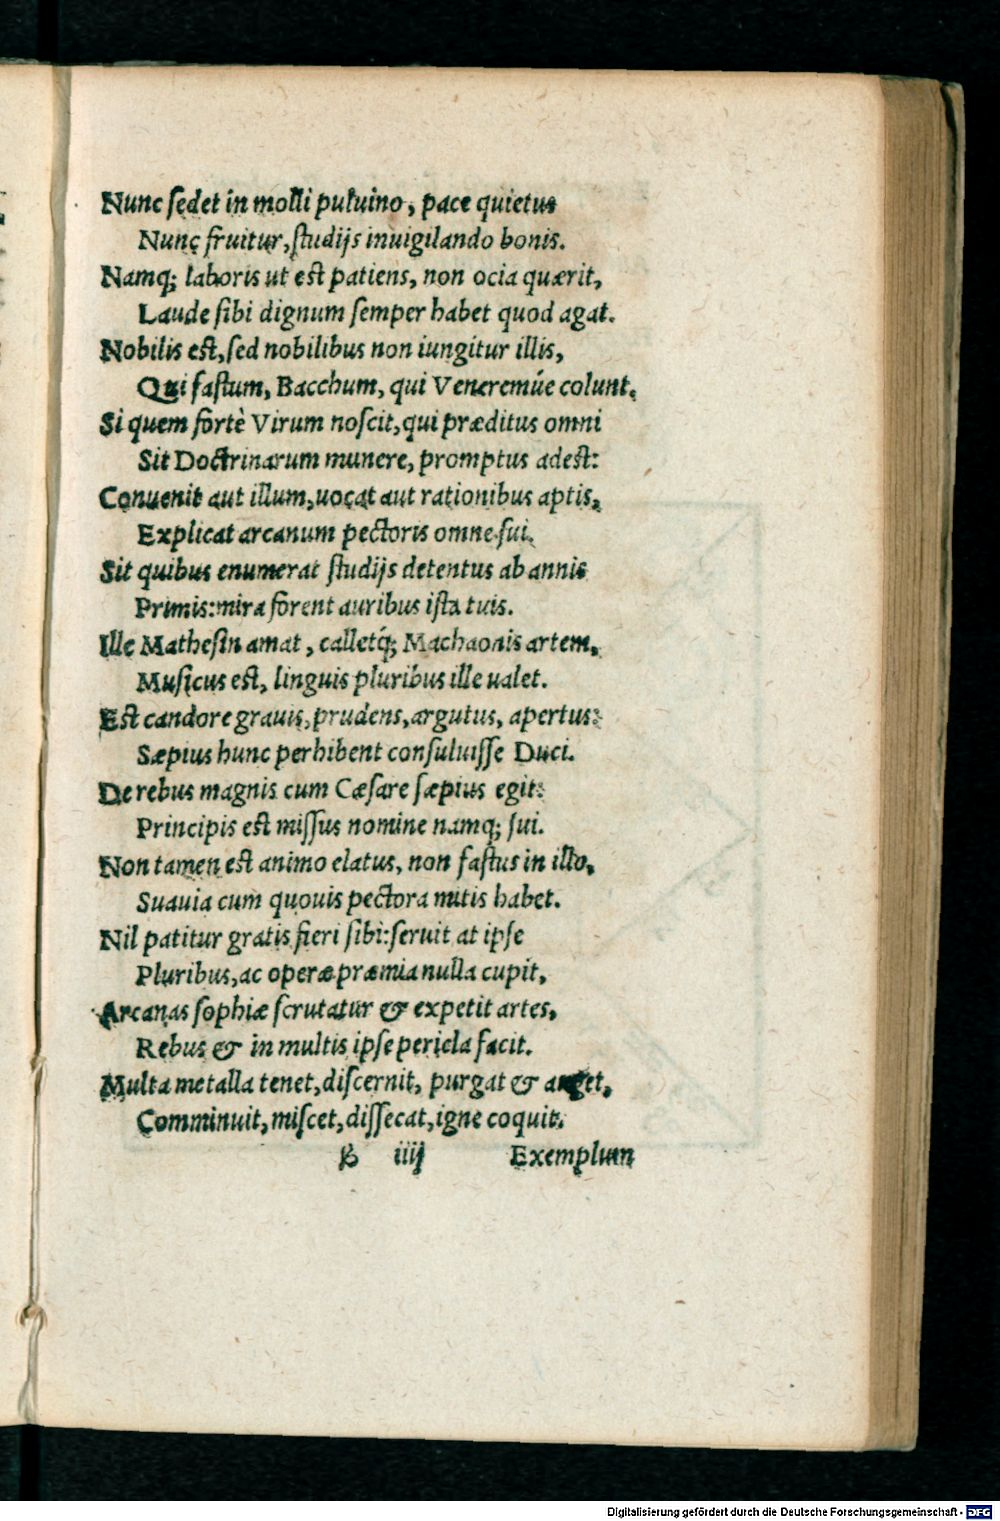 Nunc ſedet in molli puluino, pace quietus
Nunc fruitur, ſtudijs inuigilando bonis.
Namq; laboris ut eſt patiens, non ocia quærit,
Laude ſibi dignum ſemper habet quod agat.
Nobilis eſt, ſed nobilibus non iungitur illis,
Qui faſtum, Bacchum, qui Veneremúe colunt.
Si quem fortè Virum noſcit, qui præditus omni
Sit Doctrinarum munere, promptus adeſt:
Conuenit aut illum, uocat aut rationibus aptis,
Explicat arcanum pectoris omne ſui.
Sit quibus enumerat ſtudijs detentus ab annis
Primis: mira forent auribus iſta tuis.
Ille Matheſin amat, calletq́; Machaonis artem,
Muſicus eſt, linguis pluribus ille ualet.
Eſt candore grauis, prudens, argutus, apertus:
Sæpius hunc perhibent conſuluiſſe Duci.
De rebus magnis cum Cæſare ſæpius egit:
Principis eſt miſſus nomine namq; ſui.
Non tamen eſt animo elatus, non faſtus in illo,
Suauia cum quouis pectora mitis habet.
Nil patitur gratis fieri ſibi: ſeruit at ipſe
Pluribus, ac operæ præmia nulla cupit,
Arcanas ſophiæ ſcrutatur & expetit artes,
Rebus & in multis ipſe pericla facit.
Multa metalla tenet, diſcernit, purgat & auget,
Comminuit, miſcet, diſſecat, igne coquit.
B iiij Exemplum
Digitalisierung gefördert durch die Deutsche Forschungsgemeinschaft - DFG